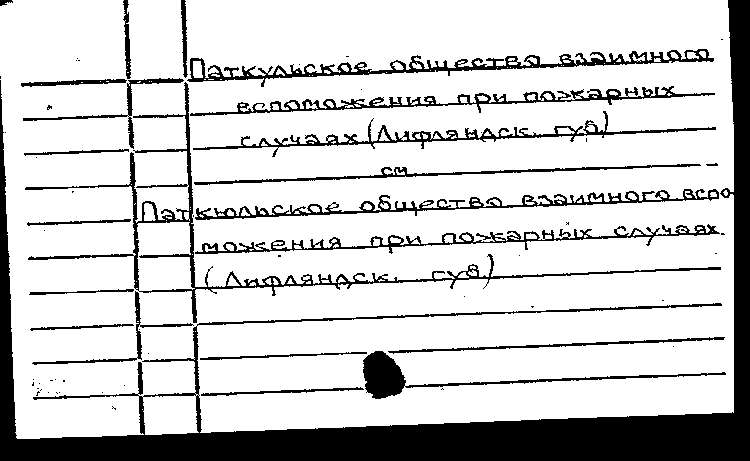 Паткульское общество взаимного
вспоможения при пожарных
случаях (Лифляндск. губ.)
см.
Паткюльское общество взаимного вспо-
можения при пожарных случаях.
(Лифляндск. губ.)